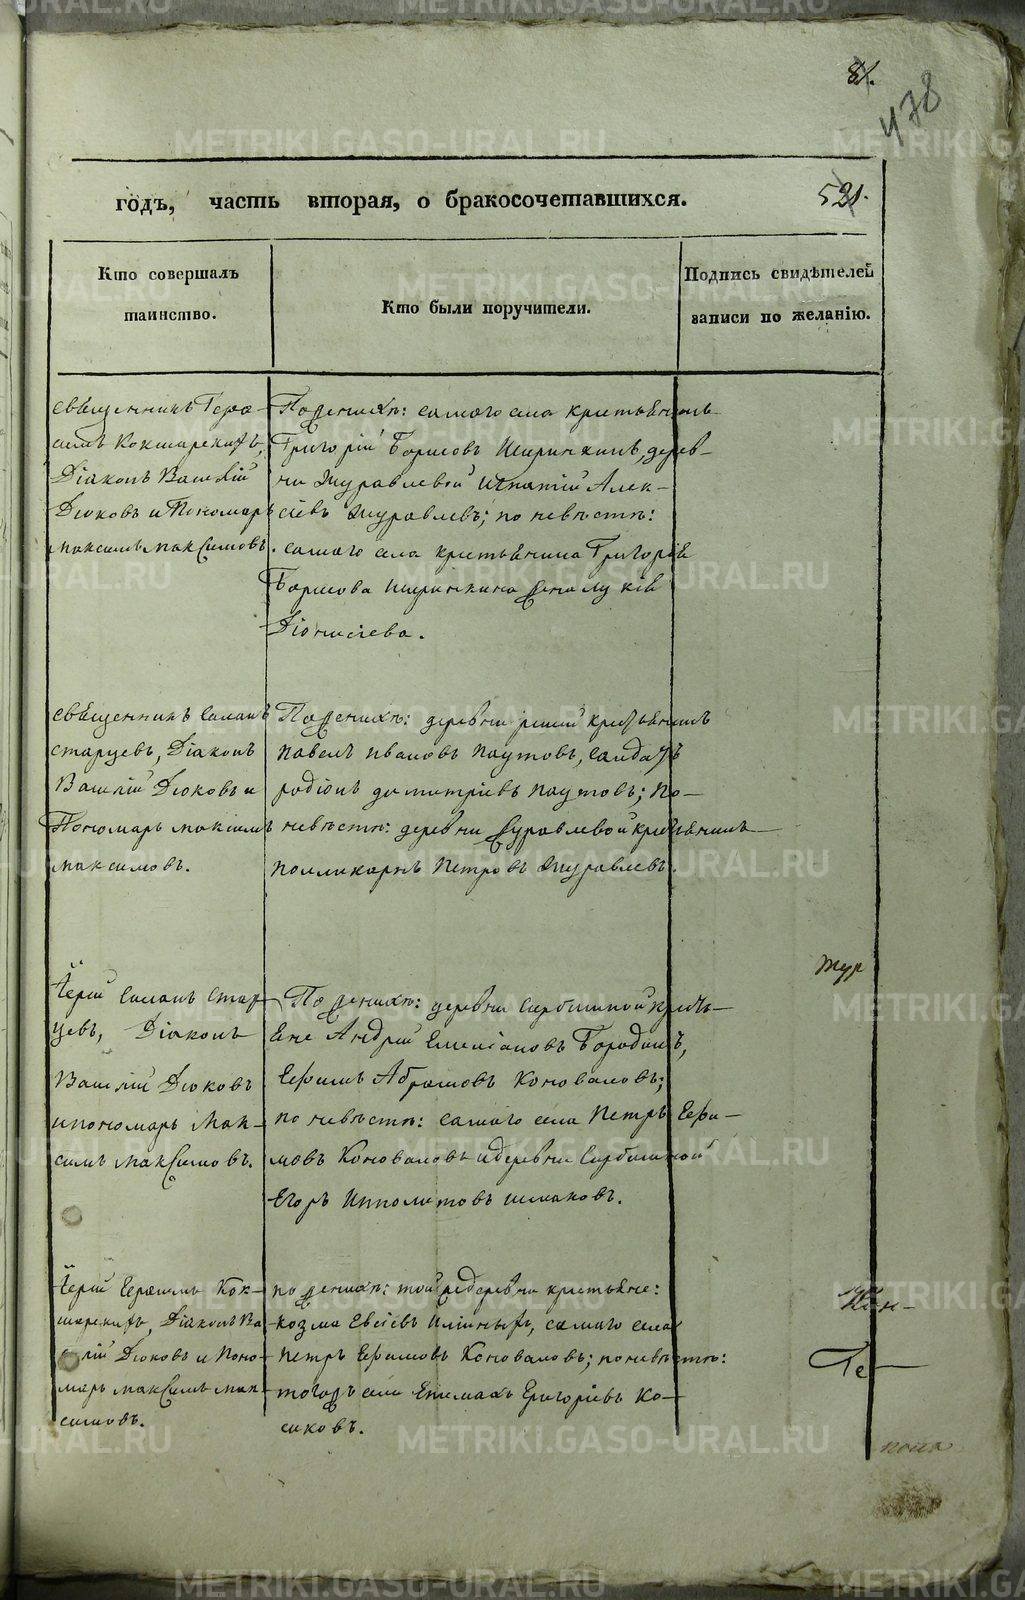 81.
478
годъ, часть вторая, о бракосочетавшихся.
521.
Кто совершалъ
таинство.
Кто были поручители.
Подпись свидѣтелей
записи по желанію.
священникъ Гера-
симъ Кокшарскихъ,
Діаконъ Василій
Дюковъ и Пономарь
максимъ максимовъ.
По женихѣ: самаго села крестьянинъ
Григорій Борисовъ Ширинкинъ, дерев-
ни Журавлевой Игнатій Алек-
сіевъ Журавлевъ; по невѣстѣ:
самаго села крестьянина Григорія
Борисова ширинкина жена лукія
Діонисіева.
священникъ Симанъ
старцевъ, Діаконъ
Василій Дюковъ и
Пономарь максимъ
максимовъ.
По женихѣ: деревни крестьянинъ
павелъ ивановъ паутовъ, салдатъ
родіонъ димитріевъ паутовъ; по
невѣстѣ: деревни журавлевой крестьянинъ
поликарпъ петровъ журавлевъ.
Іерей Симанъ Стар-
цевъ, Діаконъ
Василій Дюковъ
и пономарь Мак-
симъ максимовъ.
По женихѣ: деревни Сарбишной кресть-
яне Андрей Емеліановъ Бородинъ,
Ефимъ Абрамовъ Коноваловъ;
по невѣстѣ: самаго села Петръ Ефи-
мовъ Коноваловъ и деревни Сарбишной
Егоръ Ипполитовъ шмаковъ.
Жур
Іерей Герасимъ Кок-
шарскихъ, Діаконъ Ва
силій Дюковъ и Поно-
марь максимъ мак-
симовъ.
по женихѣ: той же деревни крестьяне:
козма Евсіевъ Ильиныхъ, самаго села
петръ Ефимовъ Коноваловъ; по невѣстѣ:
тогожъ села Епимахъ Григоріевъ Ко-
сиковъ.